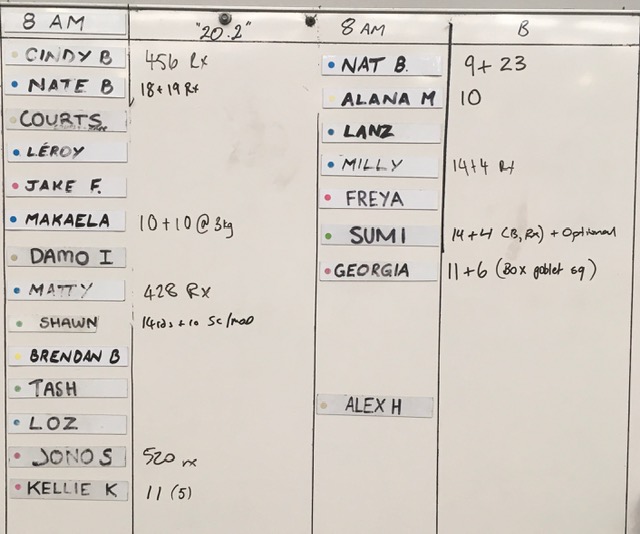 8 AM "20.2"
CINDY B 456 Rx
NATE B 18+19 Rx
COURTS
LEROY
JAKE F.
MAKAELA 10+10 @ 3kg
DAMO I
MATTY 428 Rx
SHAWN 14rds + 10 Sc/mod
BRENDAN B
TASH
LOZ
JONO S 520 rx
KELLIE K 11 (5)
8 AM B
NAT B. 9+23
ALANA M 10
LANZ
MILLY 14+4 Rx
FREYA
SUMI 14+4 (B, Rx) + Optional
GEORGIA 11+6 (Box goblet sq)
ALEX H